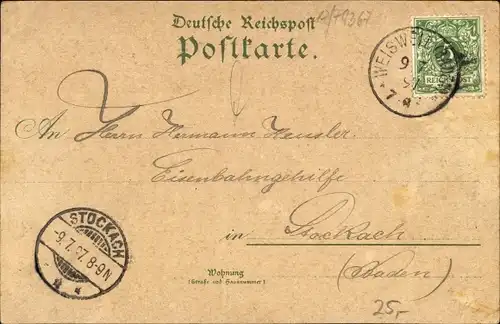 Deutsche Reichspost
Postkarte.
WEISWEIL
9 7
97
7
REICHSPOST
An Herrn Hermann Heusler
Eisenbahngehilfe
in Stockach
(Baden)
STOCKACH
-9.7.97.8-9N
Wohnung
(Straße und Hausnummer)
25,-